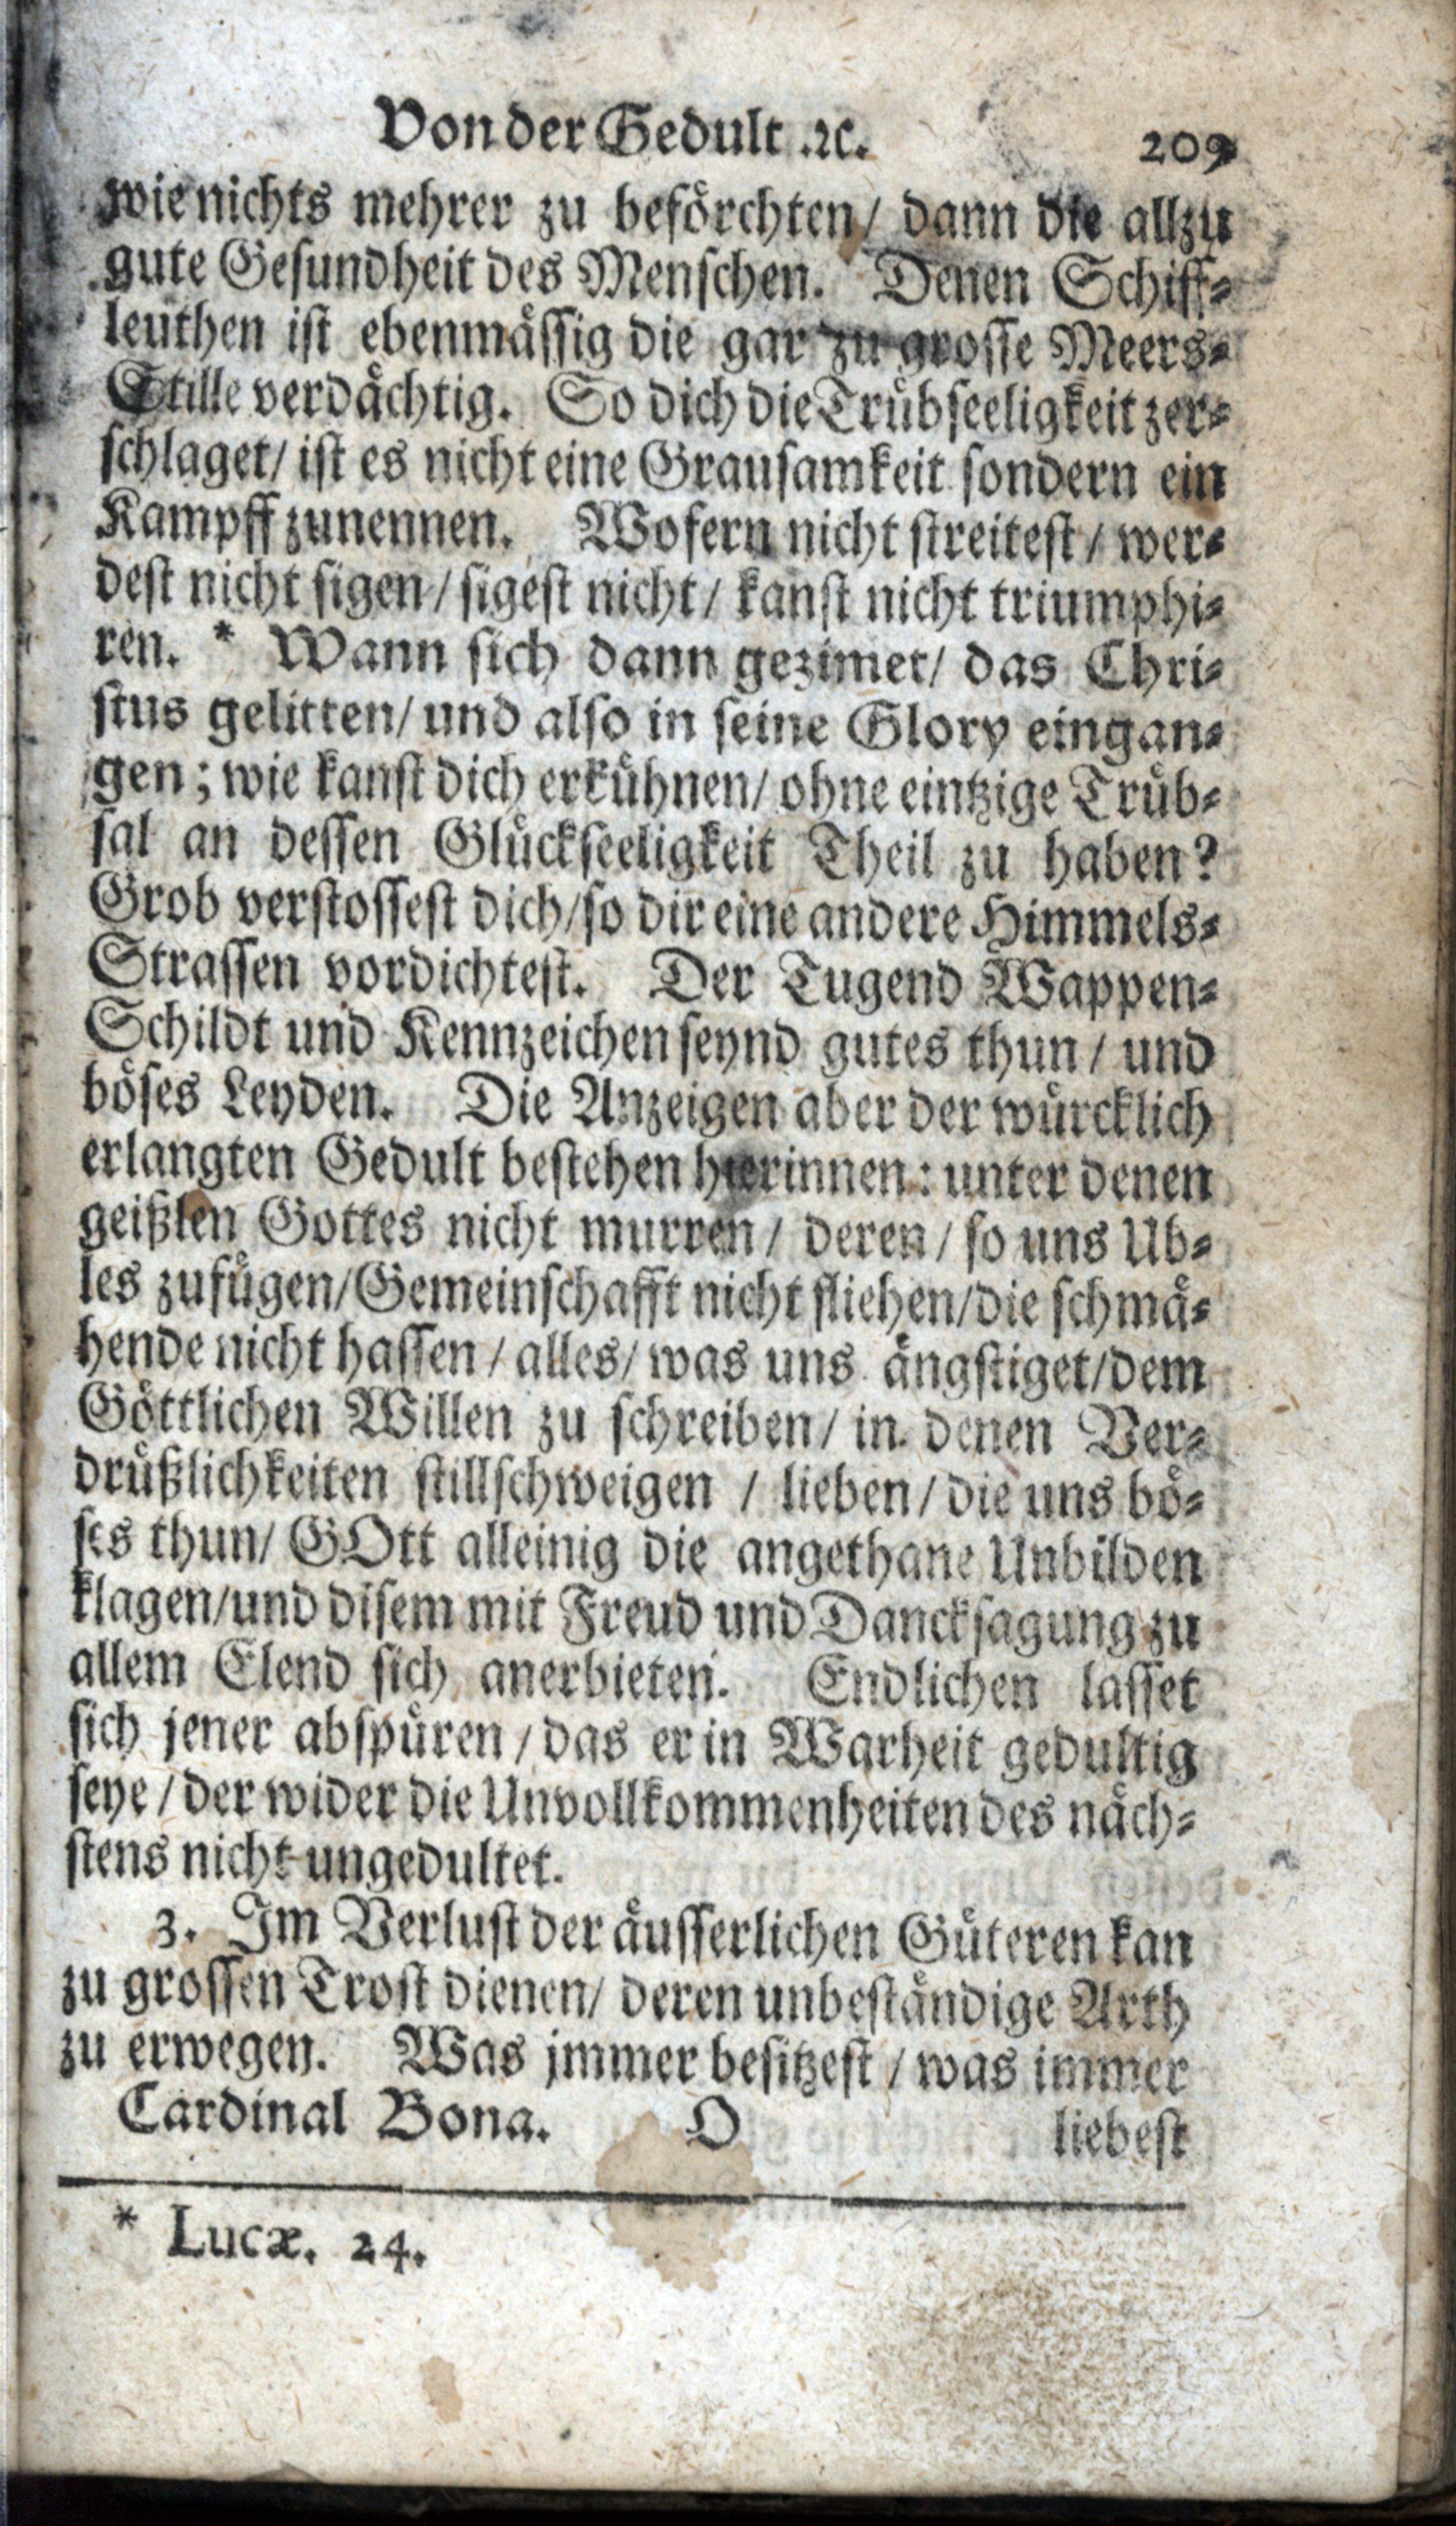 Von der Gedult .ꝛc. 209
wie nichts mehrer zu beförchten / dann die allzu
gute Gesundheit des Menschen. Denen Schiff-
leuthen ist ebenmässig die gar zu grosse Meers-
Stille verdächtig. So dich die Trübseeligkeit zer-
schlaget / ist es nicht eine Grausamkeit sondern ein
Kampff zunennen. Wofern nicht streitest / wer-
dest nicht sigen / sigest nicht / kanst nicht triumphi-
ren. * Wann sich dann gezimet / das Chri-
stus gelitten / und also in seine Glory eingan-
gen; wie kanst dich erkühnen / ohne eintzige Trüb-
sal an dessen Glückseeligkeit Theil zu haben?
Grob verstossest dich / so dir eine andere Himmels-
Strassen vordichtest. Der Tugend Wappen-
Schildt und Kennzeichen seynd gutes thun / und
böses Leyden. Die Anzeigen aber der würcklich
erlangten Gedult bestehen hierinnen: unter denen
geißlen Gottes nicht murren / deren / so uns Ub-
les zufügen / Gemeinschafft nicht fliehen / die schmä-
hende nicht hassen / alles / was uns ängstiget / dem
Göttlichen Willen zu schreiben / in denen Ver-
drüßlichkeiten stillschweigen / lieben / die uns bö-
ses thun / GOtt alleinig die angethane Unbilden
klagen / und disem mit Freud und Dancksagung zu
allem Elend sich anerbieten. Endlichen lasset
sich jener abspüren / das er in Warheit gedultig
seye / der wider die Unvollkommenheiten des näch-
stens nicht ungedultet.
3. Im Verlust der äusserlichen Güteren kan
zu grossen Trost dienen / deren unbeständige Arth
zu erwegen. Was jmmer besitzest / was immer
Cardinal Bona. O liebest
* Lucæ. 24.